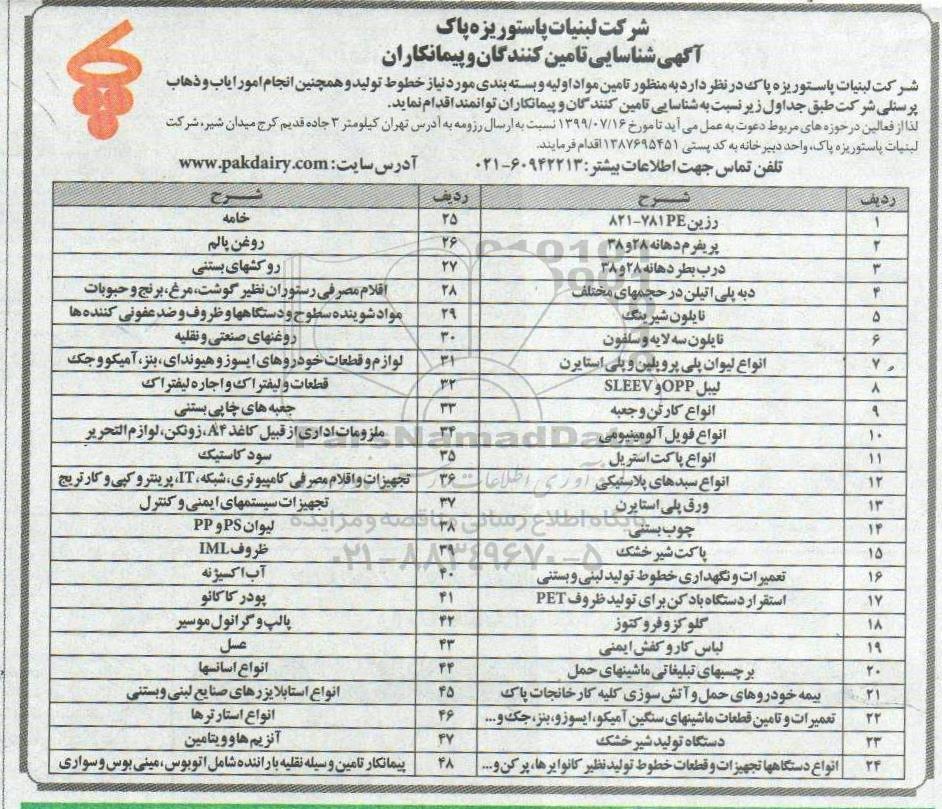 شرکت لبنیات پاستوریزه پاک
آگهی شناسایی تامین کنندگان و پیمانکاران
شرکت لبنیات پاستوریزه پاک در نظر دارد به منظور تامین مواد اولیه و بسته بندی مورد نیاز خطوط تولید و همچنین انجام امور ایاب و ذهاب
پرسنلی شرکت طبق جداول زیر نسبت به شناسایی تامین کنندگان و پیمانکاران توانمند اقدام نماید.
لذا از فعالین در حوزه های مربوط دعوت به عمل می آید تا مورخ ۱۳۹۹/۰۷/۱۶ نسبت به ارسال رزومه به آدرس تهران کیلومتر ۳ جاده قدیم کرج میدان شیر، شرکت
لبنیات پاستوریزه پاک، واحد دبیرخانه به کد پستی ۱۳۸۷۶۹۵۴۵۱ اقدام فرمایند.
تلفن تماس جهت اطلاعات بیشتر: ۶۰۹۴۲۲۱۳-۰۲۱ آدرس سایت: www.pakdairy.com
ردیف شرح ردیف شرح
۱ رزین PE ۷۸۱-۸۲۱ ۲۵ خامه
۲ پریفرم دهانه ۲۸ و ۳۸ ۲۶ روغن پالم
۳ درب بطر دهانه ۲۸ و ۳۸ ۲۷ روکشهای بستنی
۴ دبه پلی اتیلن در حجمهای مختلف ۲۸ اقلام مصرفی رستوران نظیر گوشت، مرغ، برنج و حبوبات
۵ نایلون شیرینگ ۲۹ مواد شوینده سطوح و دستگاهها و ظروف و ضدعفونی کننده ها
۶ نایلون سه لایه و سلفون ۳۰ روغنهای صنعتی و نقلیه
۷ انواع لیوان پلی پروپلین و پلی استایرن ۳۱ لوازم و قطعات خودروهای ایسوز و هیوندای، بنز، آمیکو و جک
۸ لیبل OPP و SLEEV ۳۲ قطعات و لیفتراک و اجاره لیفتراک
۹ انواع کارتن و جعبه ۳۳ جعبه های چاپی بستنی
۱۰ انواع فویل آلومینیومی ۳۴ ملزومات اداری از قبیل کاغذ A۴، زونکن، لوازم التحریر
۱۱ انواع پاکت استریل ۳۵ سود کاستیک
۱۲ انواع سبدهای پلاستیکی ۳۶ تجهیزات و اقلام مصرفی کامپیوتری، شبکه، IT، پرینتر و کپی و کارتریج
۱۳ ورق پلی استایرن ۳۷ تجهیزات سیستمهای ایمنی و کنترل
۱۴ چوب بستنی ۳۸ لیوان PS و PP
۱۵ پاکت شیر خشک ۳۹ ظروف IML
۱۶ تعمیرات و نگهداری خطوط تولید لبنی و بستنی ۴۰ آب اکسیژنه
۱۷ استقرار دستگاه بادکن برای تولید ظروف PET ۴۱ پودر کاکائو
۱۸ گلوکز و فروکتوز ۴۲ پالپ و گرانول موسیر
۱۹ لباس کار و کفش ایمنی ۴۳ عسل
۲۰ برچسبهای تبلیغاتی ماشینهای حمل ۴۴ انواع اسانسها
۲۱ بیمه خودروهای حمل و آتش سوزی کلیه کارخانجات پاک ۴۵ انواع استابلایزرهای صنایع لبنی و بستنی
۲۲ تعمیرات و تامین قطعات ماشینهای سنگین آمیکو، ایسوزو، بنز، جک و... ۴۶ انواع استارترها
۲۳ دستگاه تولید شیر خشک ۴۷ آنزیم ها و ویتامین
۲۴ انواع دستگاهها تجهیزات و قطعات خطوط تولید نظیر کانوایرها، پرکن و... ۴۸ پیمانکار تامین وسیله نقلیه با راننده شامل اتوبوس، مینی بوس و سواری
ParsNamadData
پایگاه اطلاع رسانی مناقصه و مزایده
۰۲۱-۸۸۳۴۹۶۷۰-۵